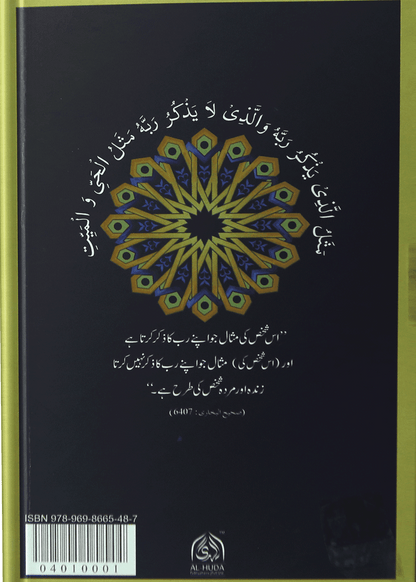 مَثَلُ الَّذِىْ يَذْكُرُ رَبَّهُ وَالَّذِىْ لَا يَذْكُرُ رَبَّهُ مَثَلُ الْحَىِّ وَ الْمَيِّتِ
"اس شخص کی مثال جو اپنے رب کا ذکر کرتا ہے
اور (اس شخص کی) مثال جو اپنے رب کا ذکر نہیں کرتا
زندہ اور مردہ شخص کی طرح ہے۔"
(صحیح البخاری: 6407)
ISBN 978-969-8665-48-7
04010001
AL HUDA